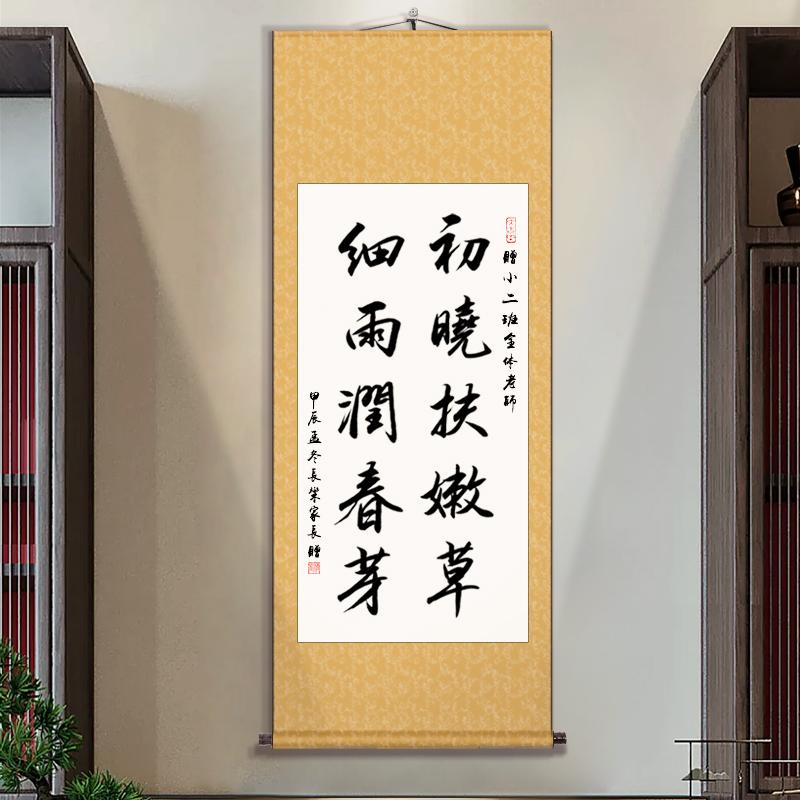 贈小二班全体老師
初曉扶嫩草
細雨潤春芽
甲辰孟冬長榮家長贈